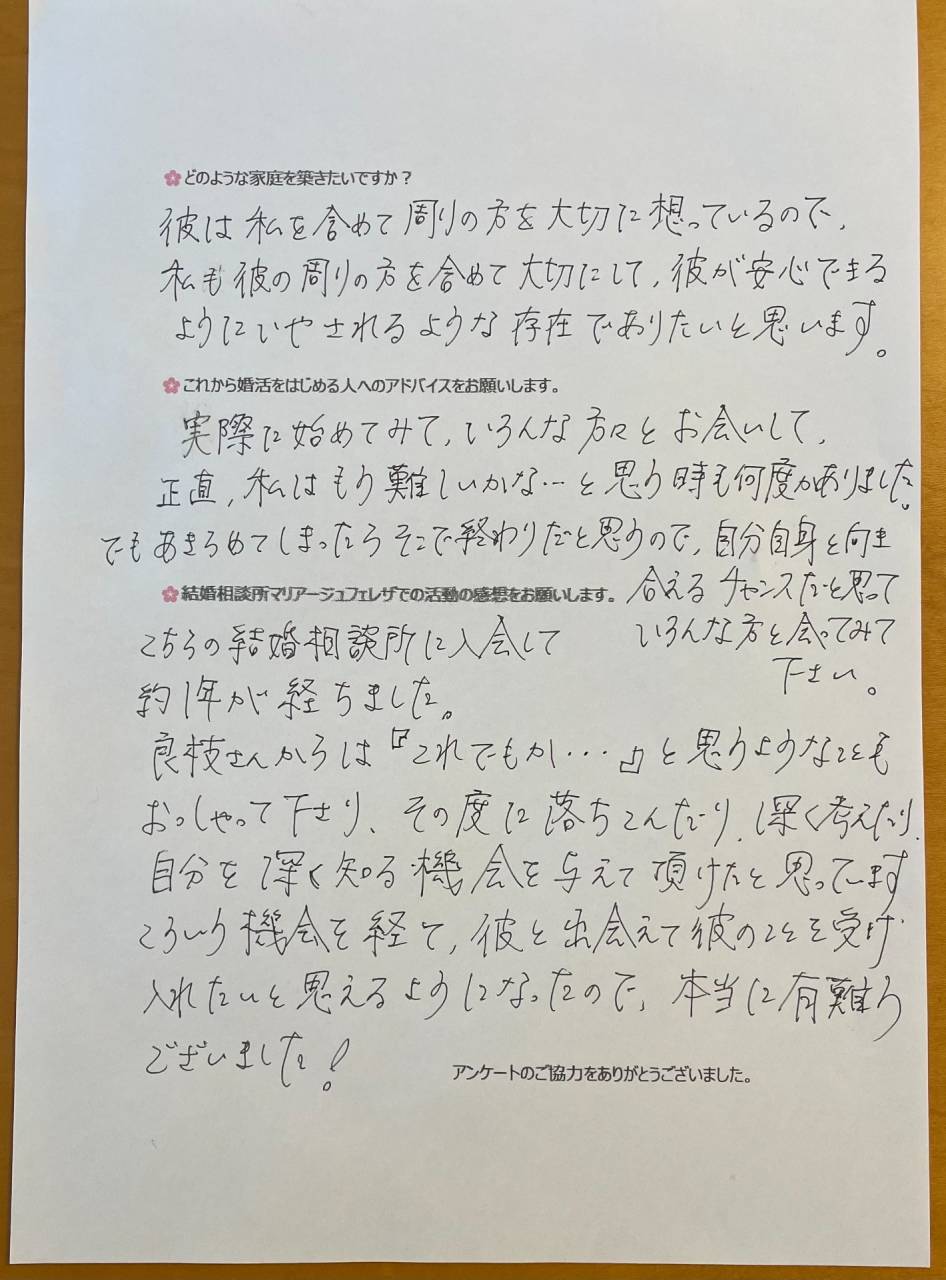 どのような家庭を築きたいですか？
彼は私を含めて周りの方を大切に想っているので、
私も彼の周りの方を含めて大切にして、彼が安心できる
ようにいやされるような存在でありたいと思います。
これから婚活をはじめる人へのアドバイスをお願いします。
実際に始めてみて、いろんな方々とお会いして、
正直、私はもう難しいかな…と思う時も何度かありました。
でもあきらめてしまったらそこで終わりだと思うので、自分自身と向き
合えるチャンスだと思って
いろんな方と会ってみて
下さい。
結婚相談所マリアージュフェレザでの活動の感想をお願いします。
こちらの結婚相談所に入会して
約1年が経ちました。
良枝さんからは『これでもか・・・』と思うようなことも
おっしゃって下さり、その度に落ちこんだり、深く考えたり、
自分を深く知る機会を与えて頂けたと思っています
こういう機会を経て、彼と出会えて彼のことを受け
入れたいと思えるようになったので、本当に有難う
ございました!
アンケートのご協力をありがとうございました。